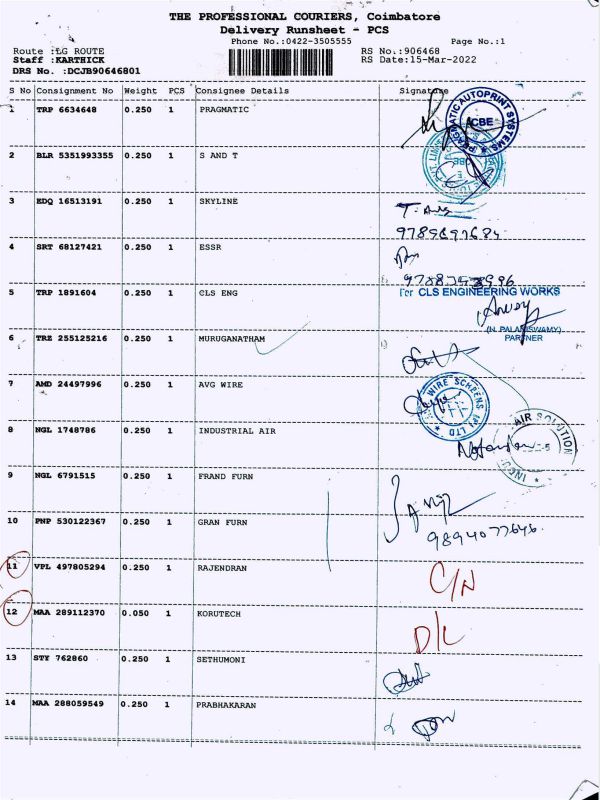 THE PROFESSIONAL COURIERS, Coimbatore
Delivery Runsheet - PCS
Phone No.:0422-3505555 Page No.:1
Route :LG ROUTE RS No.:906468
Staff :KARTHICK RS Date:15-Mar-2022
DRS No. :DCJB90646801
S No Consignment No Weight PCS Consignee Details Signature
1 TRP 6634648 0.250 1 PRAGMATIC
PRAGMATIC AUTOPRINT SYSTEMS
CBE
2 BLR 5351993355 0.250 1 S AND T
3 EDQ 16513191 0.250 1 SKYLINE
4 SRT 68127421 0.250 1 ESSR
5 TRP 1891604 0.250 1 CLS ENG
For CLS ENGINEERING WORKS
(N. PALANISWAMY)
PARTNER
6 TRZ 255125216 0.250 1 MURUGANATHAM
7 AMD 24497996 0.250 1 AVG WIRE
WIRE SCREENS (P) LTD
8 NGL 1748786 0.250 1 INDUSTRIAL AIR
AIR SOLUTION
9 NGL 6791515 0.250 1 FRAND FURN
10 PNP 530122367 0.250 1 GRAN FURN
9894077646
11 VPL 497805294 0.250 1 RAJENDRAN C/N
12 MAA 289112370 0.050 1 KORUTECH D/L
13 STY 762860 0.250 1 SETHUMONI
14 MAA 288059549 0.250 1 PRABHAKARAN